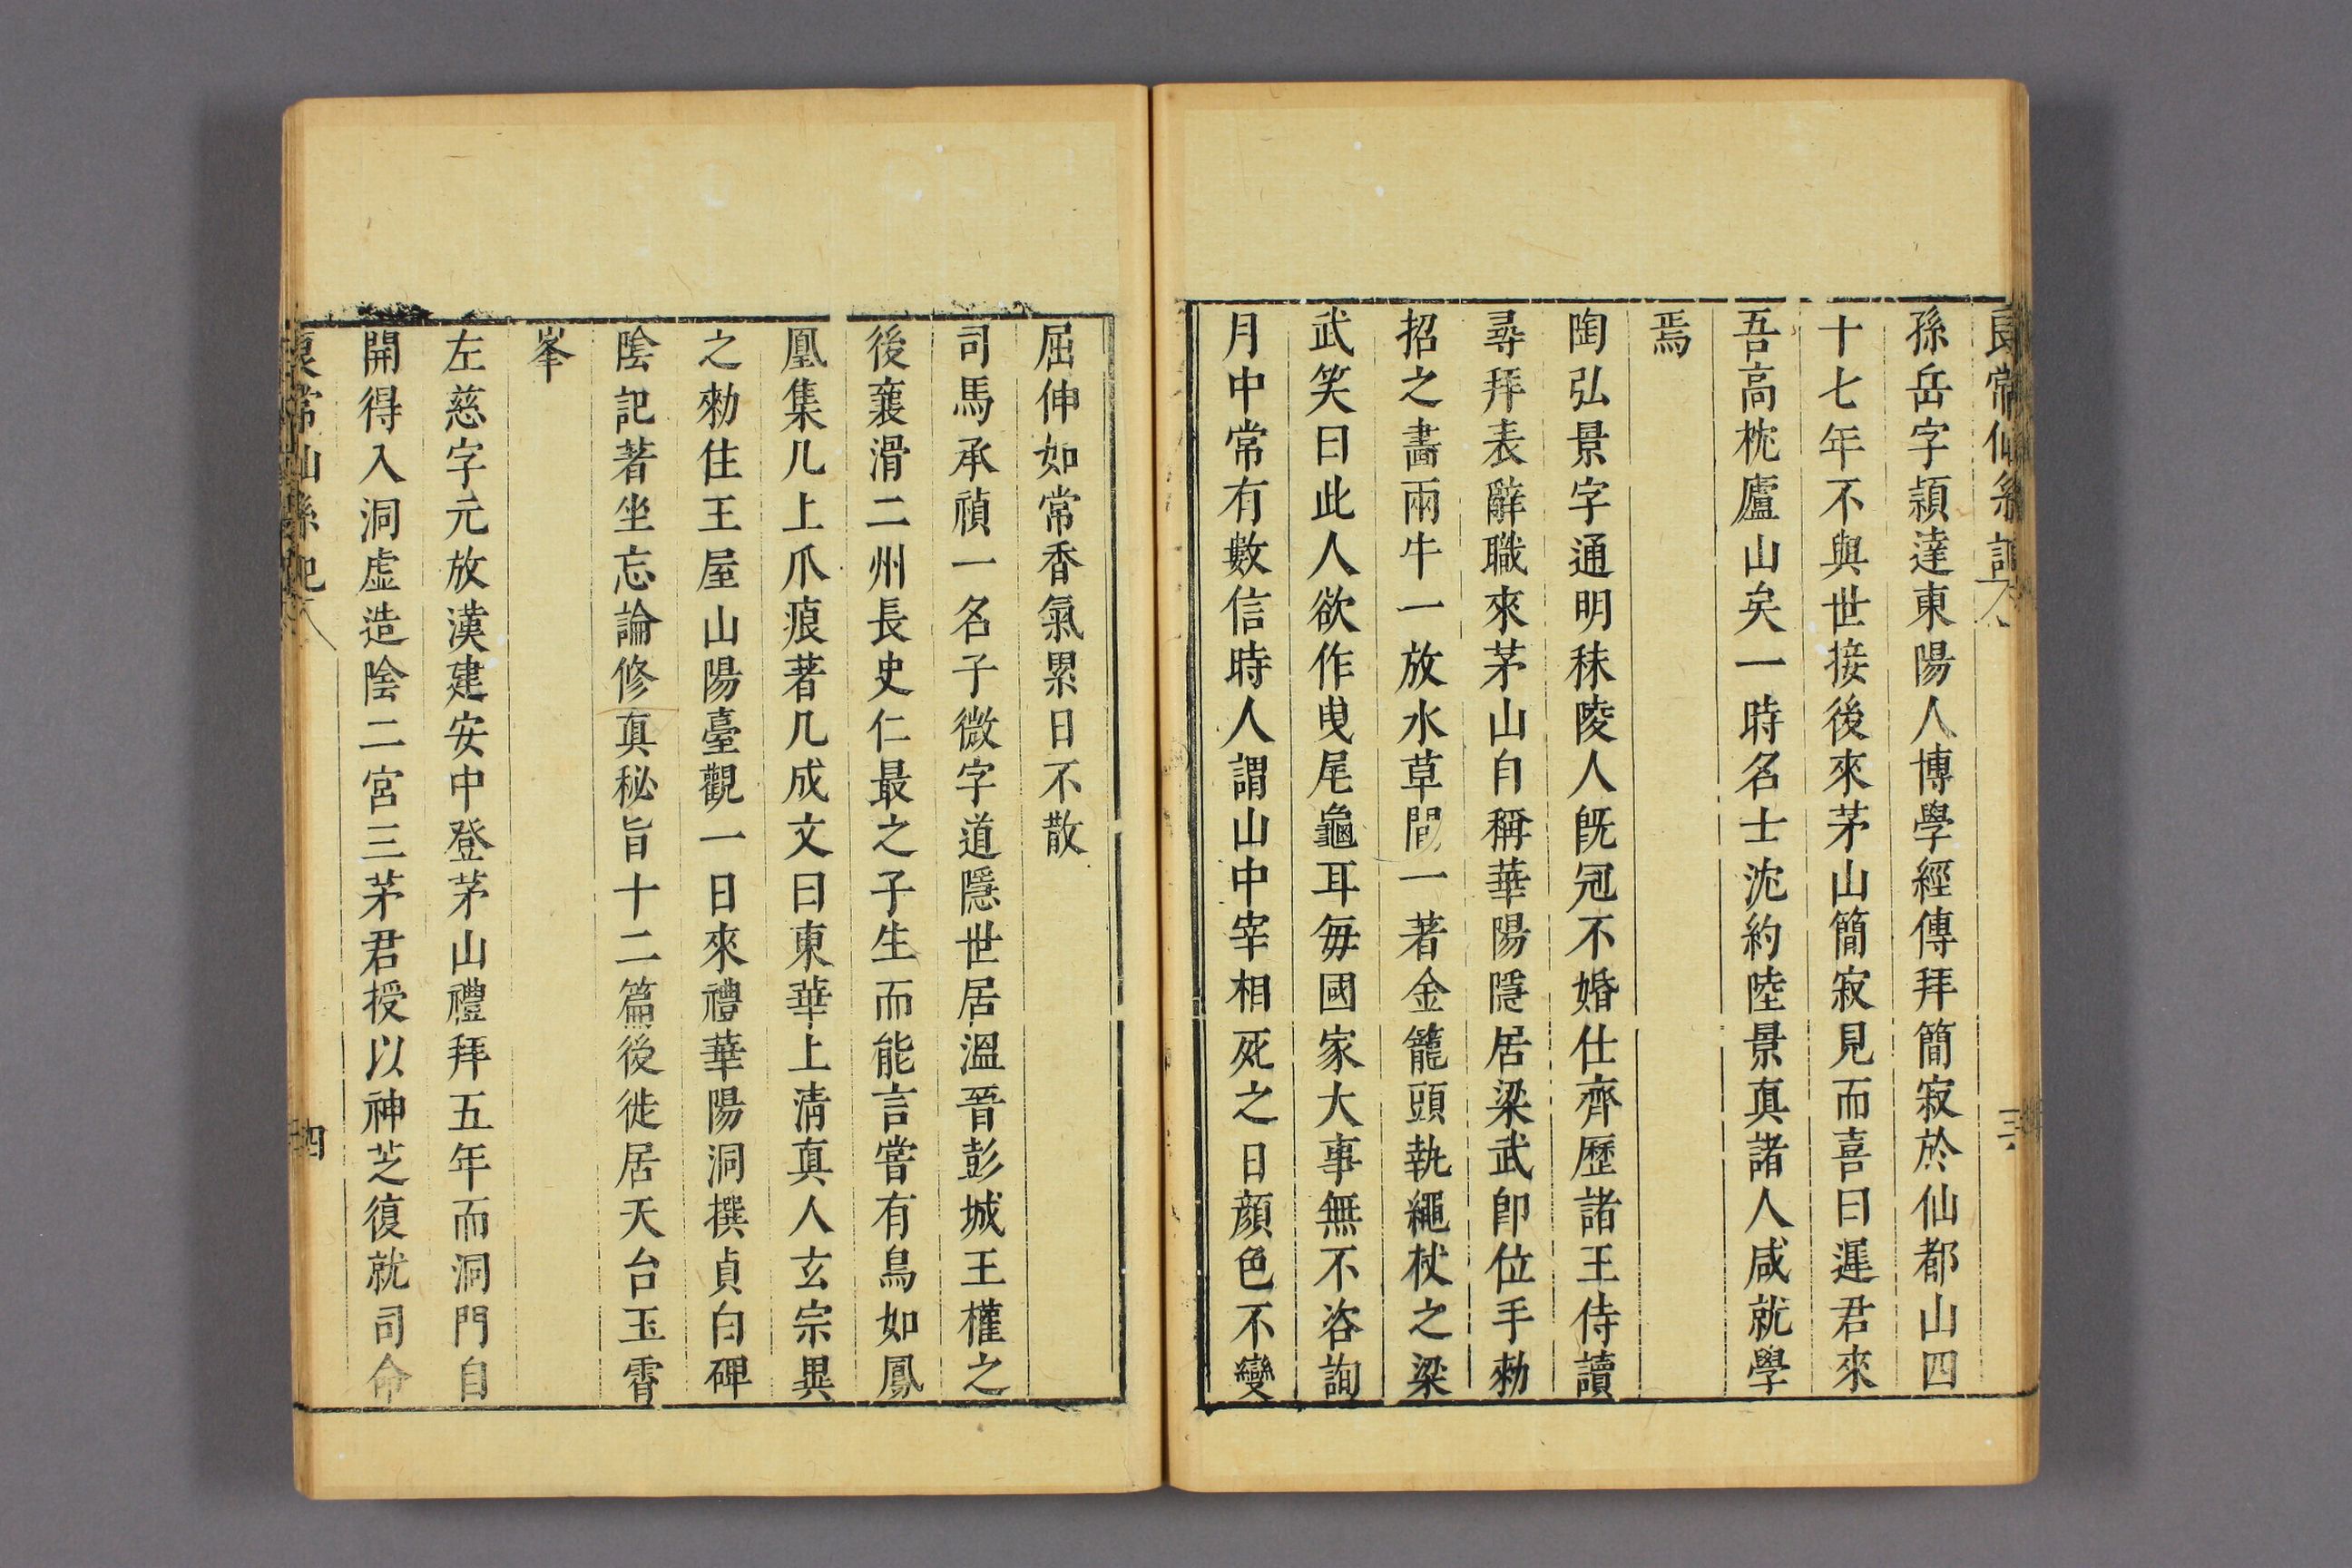 孫岳字頴達東陽人博學經傳拜簡寂於仙都山四
十七年不與世接後來茅山簡寂見而喜曰遲君來
吾高枕廬山矣一時名士沈約陸景真諸人咸就學
焉
陶弘景字通明秣陵人旣冠不婚仕齊歷諸王侍讀
尋拜表辭職來茅山自稱華陽隱居梁武卽位手勑
招之畵兩牛一放水草間一著金籠頭執繩杖之梁
武笑曰此人欲作曳尾龜耳每國家大事無不咨詢
月中常有數信時人謂山中宰相死之日顏色不變
屈伸如常香氣累日不散
司馬承禎一名子微字道隱世居溫晉彭城王權之
後襄滑二州長史仁最之子生而能言嘗有鳥如鳳
凰集几上爪痕著几成文曰東華上清真人玄宗異
之勑住王屋山陽臺觀一日來禮華陽洞撰貞白碑
陰記著坐忘論修真秘旨十二篇後徙居天台玉霄
峯
左慈字元放漢建安中登茅山禮拜五年而洞門自
開得入洞虛造陰二宮三茅君授以神芝復就司命
常仙系
四